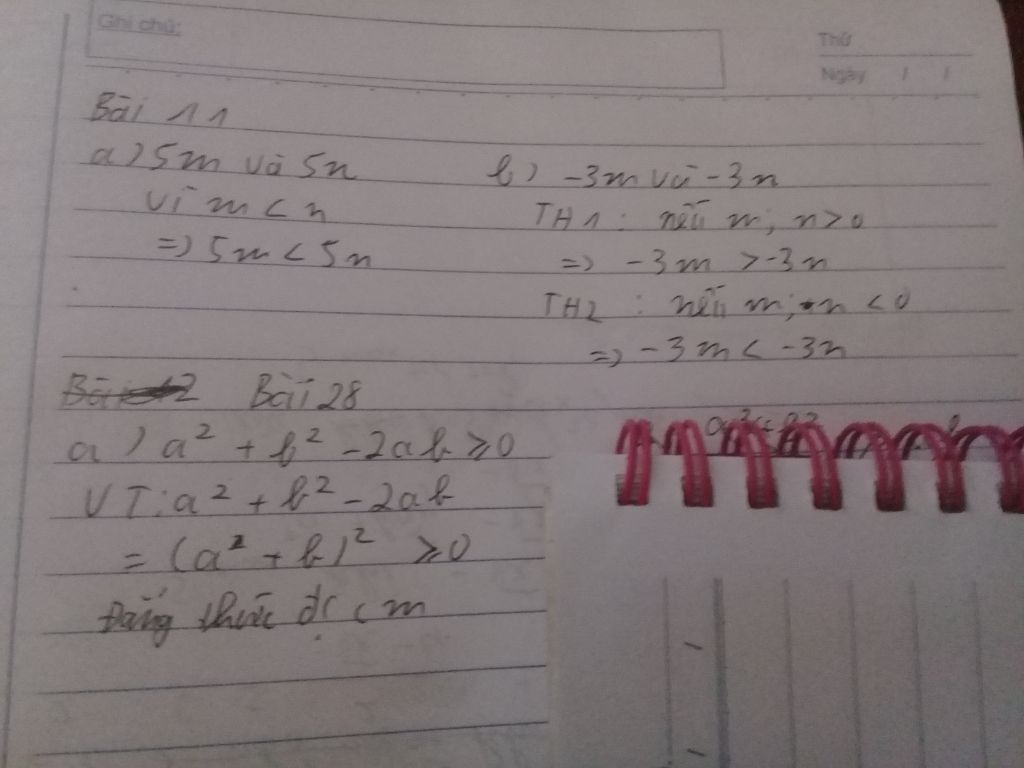 Ghi chú:
Thứ
Ngày / /
Bài 11
a) 5m và 5n
vì m < n
=> 5m < 5n
b) -3m và -3n
TH1 : nếu m; n > 0
=> -3m > -3n
TH2 : nếu m; n < 0
=> -3m < -3n
Bài 2 Bài 28
a) a² + b² - 2ab ≥ 0
VT: a² + b² - 2ab
= (a² + b)² ≥ 0
Đẳng thức đc cm